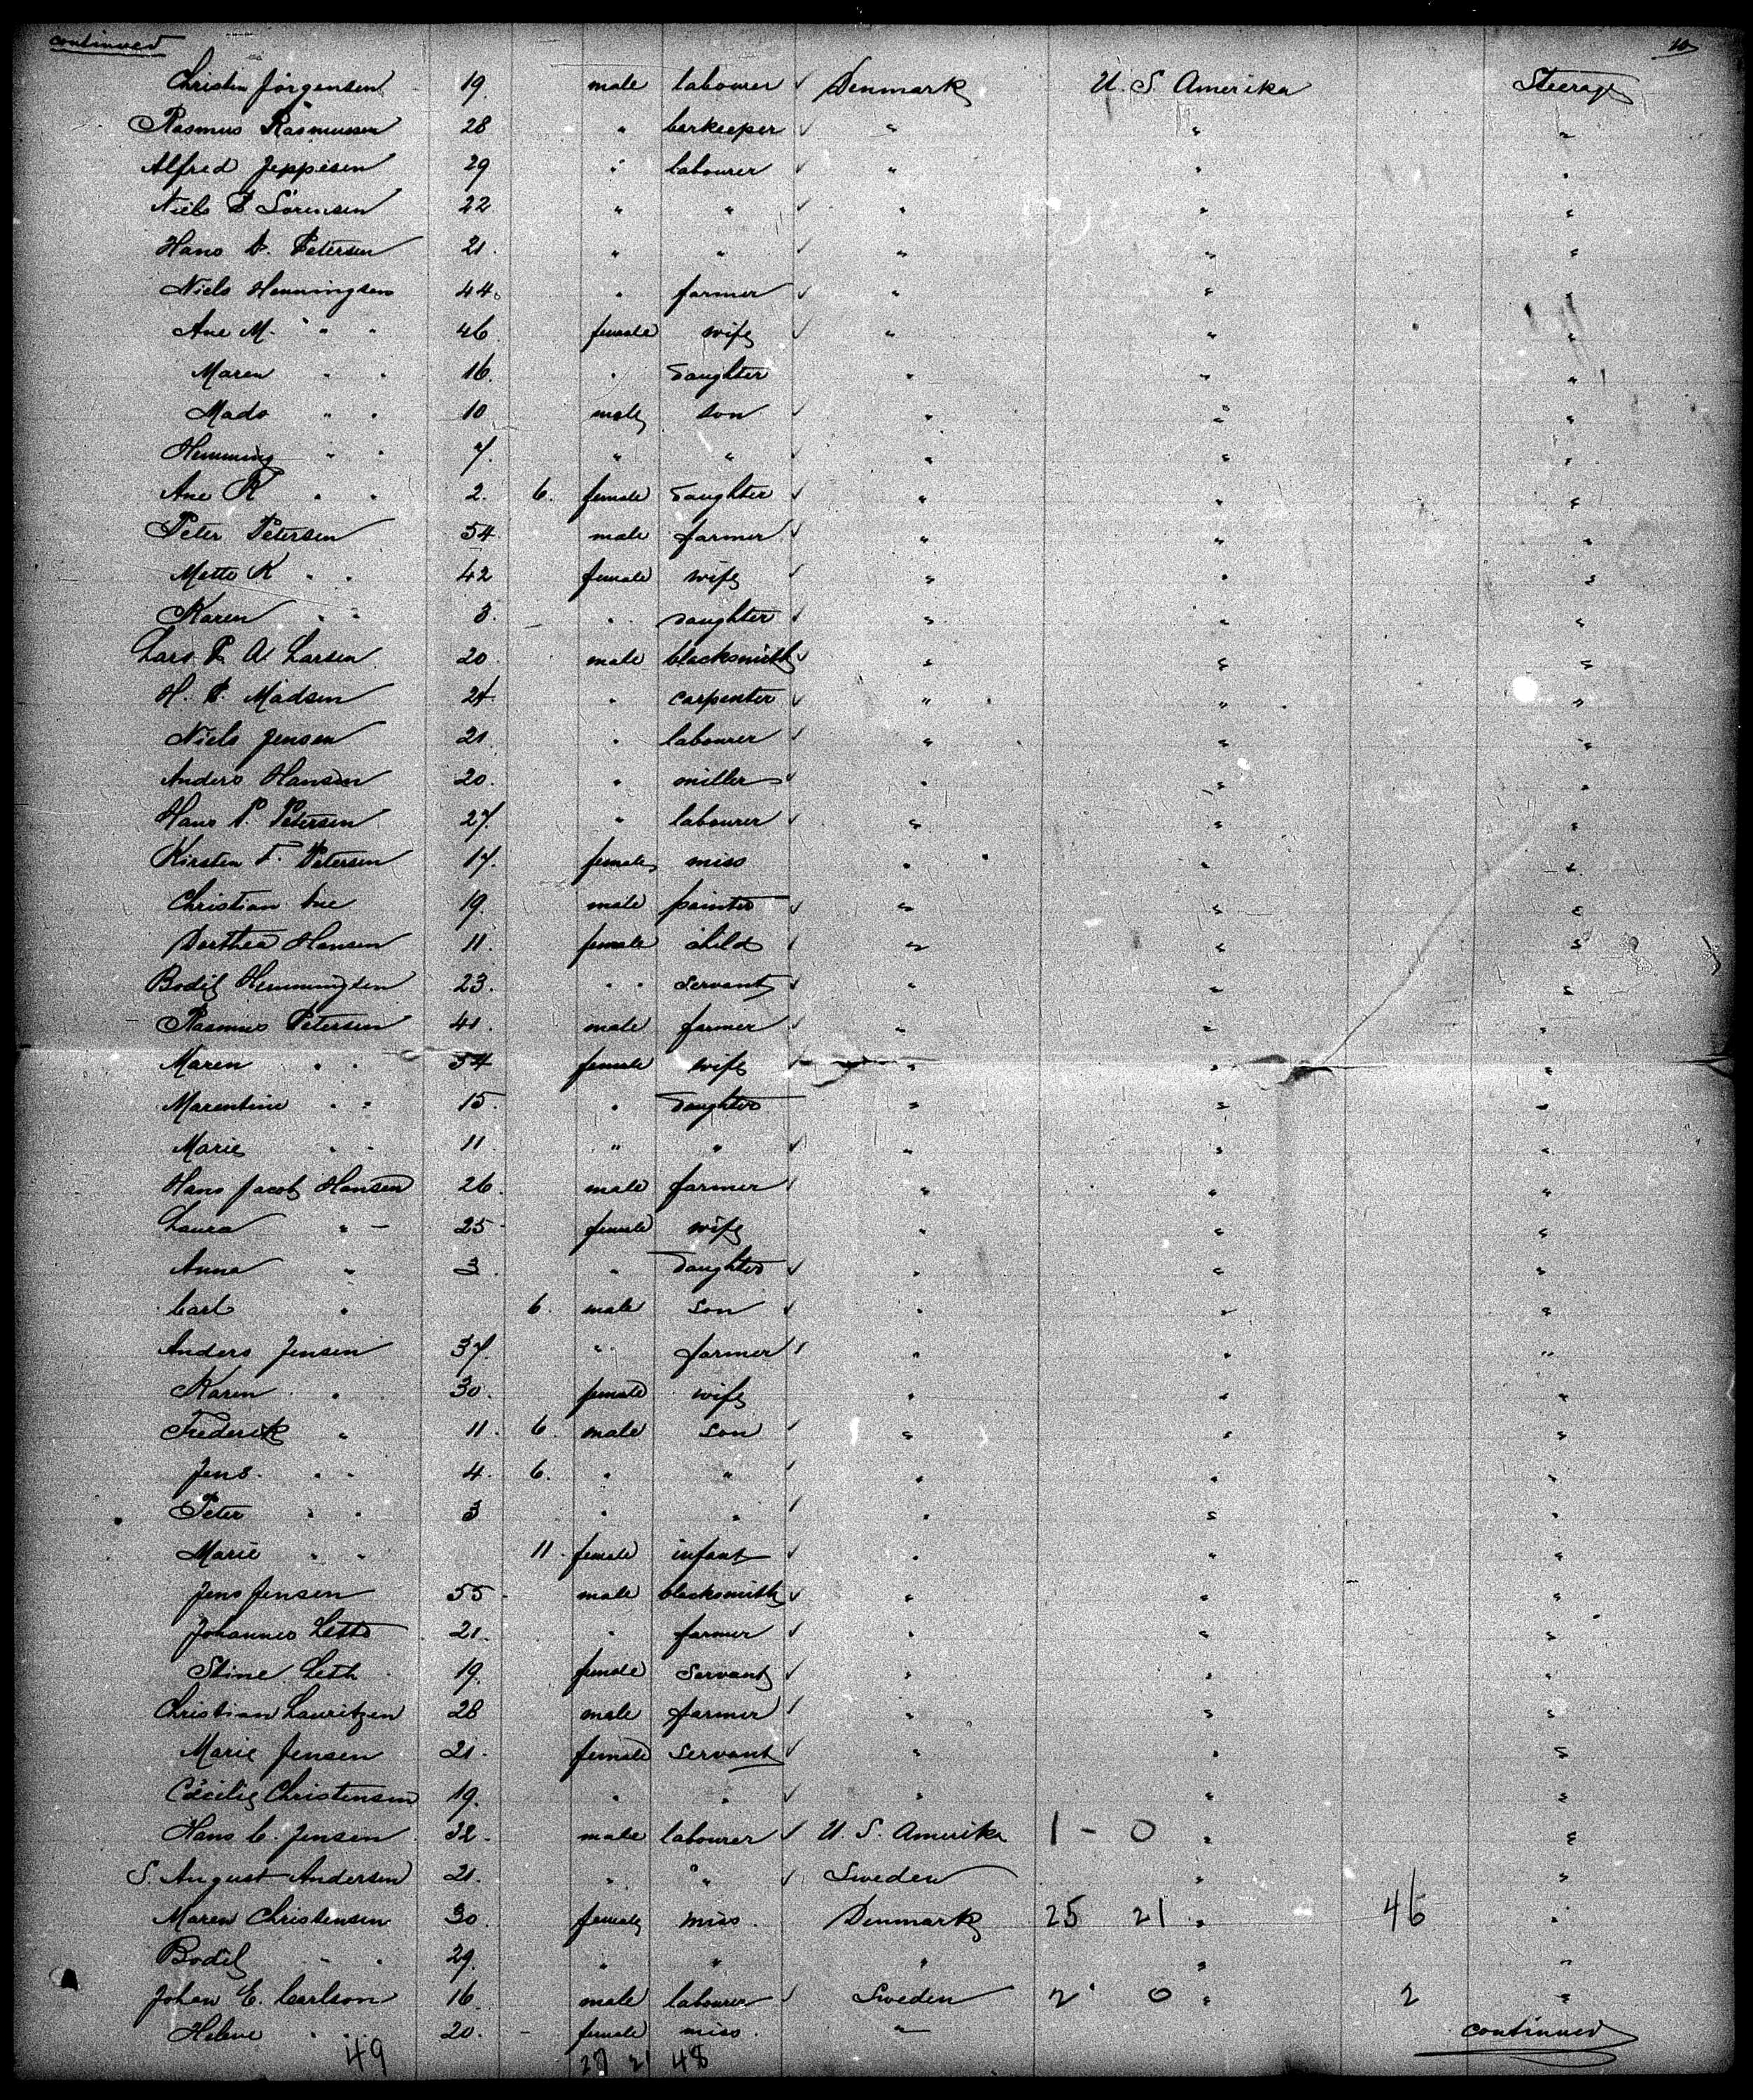 continued 10
Christen Jörgensen 19. male labourer ✓ Denmark U. S. Amerika Steerage
Rasmus Rasmussen 28 " barkeeper ✓ " " "
Alfred Jeppesen 29 " labourer ✓ " " "
Niels P Sörensen 22 " " ✓ " " "
Hans P. Petersen 21. " " ✓ " " "
Niels Henningsen 44. " farmer ✓ " " "
Ane M. " " 46 female wife ✓ " " "
Maren " " 16. " daughter " " "
Mads " " 10 male son ✓ " " "
Henning " " 7. " " ✓ " " "
Ane K " " 2. 6. female daughter ✓ " " "
Peter Petersen 54 male farmer ✓ " " "
Mette K " " 42 female wife ✓ " " "
Karen " " 3. " daughter ✓ " " "
Lars P. A. Larsen 20 male blacksmith ✓ " " "
H. P. Madsen 24. " carpenter ✓ " " "
Niels Jensen 21 " labourer ✓ " " "
Anders Hansen 20. " miller ✓ " " "
Hans P. Petersen 27. " labourer ✓ " " "
Kirsten F. Petersen 17. female miss " " "
Christian 19. male painter ✓ " " "
Dorthea Hansen 11. female child ✓ " " "
Bodil Henningsen 23. " " servant ✓ " " "
Rasmus Petersen 41. male farmer ✓ " " "
Maren " " 54 female wife ✓ " " "
Marentine " " 15. " daughter " " "
Marie " " 11. " " ✓ " " "
Hans Jacob Hansen 26. male farmer ✓ " " "
Laura " 25 female wife " " "
Anna " 3. " daughter ✓ " " "
Carl " 6. male son ✓ " " "
Anders Jensen 37. " farmer ✓ " " "
Karen " 30. female wife " " "
Frederik " 11. 6. male son ✓ " " "
Jens " " 4. 6. " " ✓ " " "
Peter " " 3 " " ✓ " " "
Marie " " 11. female infant ✓ " " "
Jens Jensen 55 male blacksmith ✓ " " "
Johannes 21. " farmer ✓ " " "
Stine Leth 19. female servant ✓ " " "
Christian Lauritzen 28 male farmer ✓ " " "
Marie Jensen 21. female servant ✓ " " "
Cecilie Christensen 19. " " ✓ " " "
Hans C. Jensen 32. male labourer ✓ U. S. Amerika 1 - 0 " "
S. August Andersen 21. " " ✓ Sweden " "
Maren Christensen 30. female miss. Denmark 25 21 " 46 "
Bodil " " 29. " " " " "
Johan E. Carlson 16. male labourer ✓ Sweden 2 0 " 2 "
Helene " " 20. female miss. " continued
49 21 48